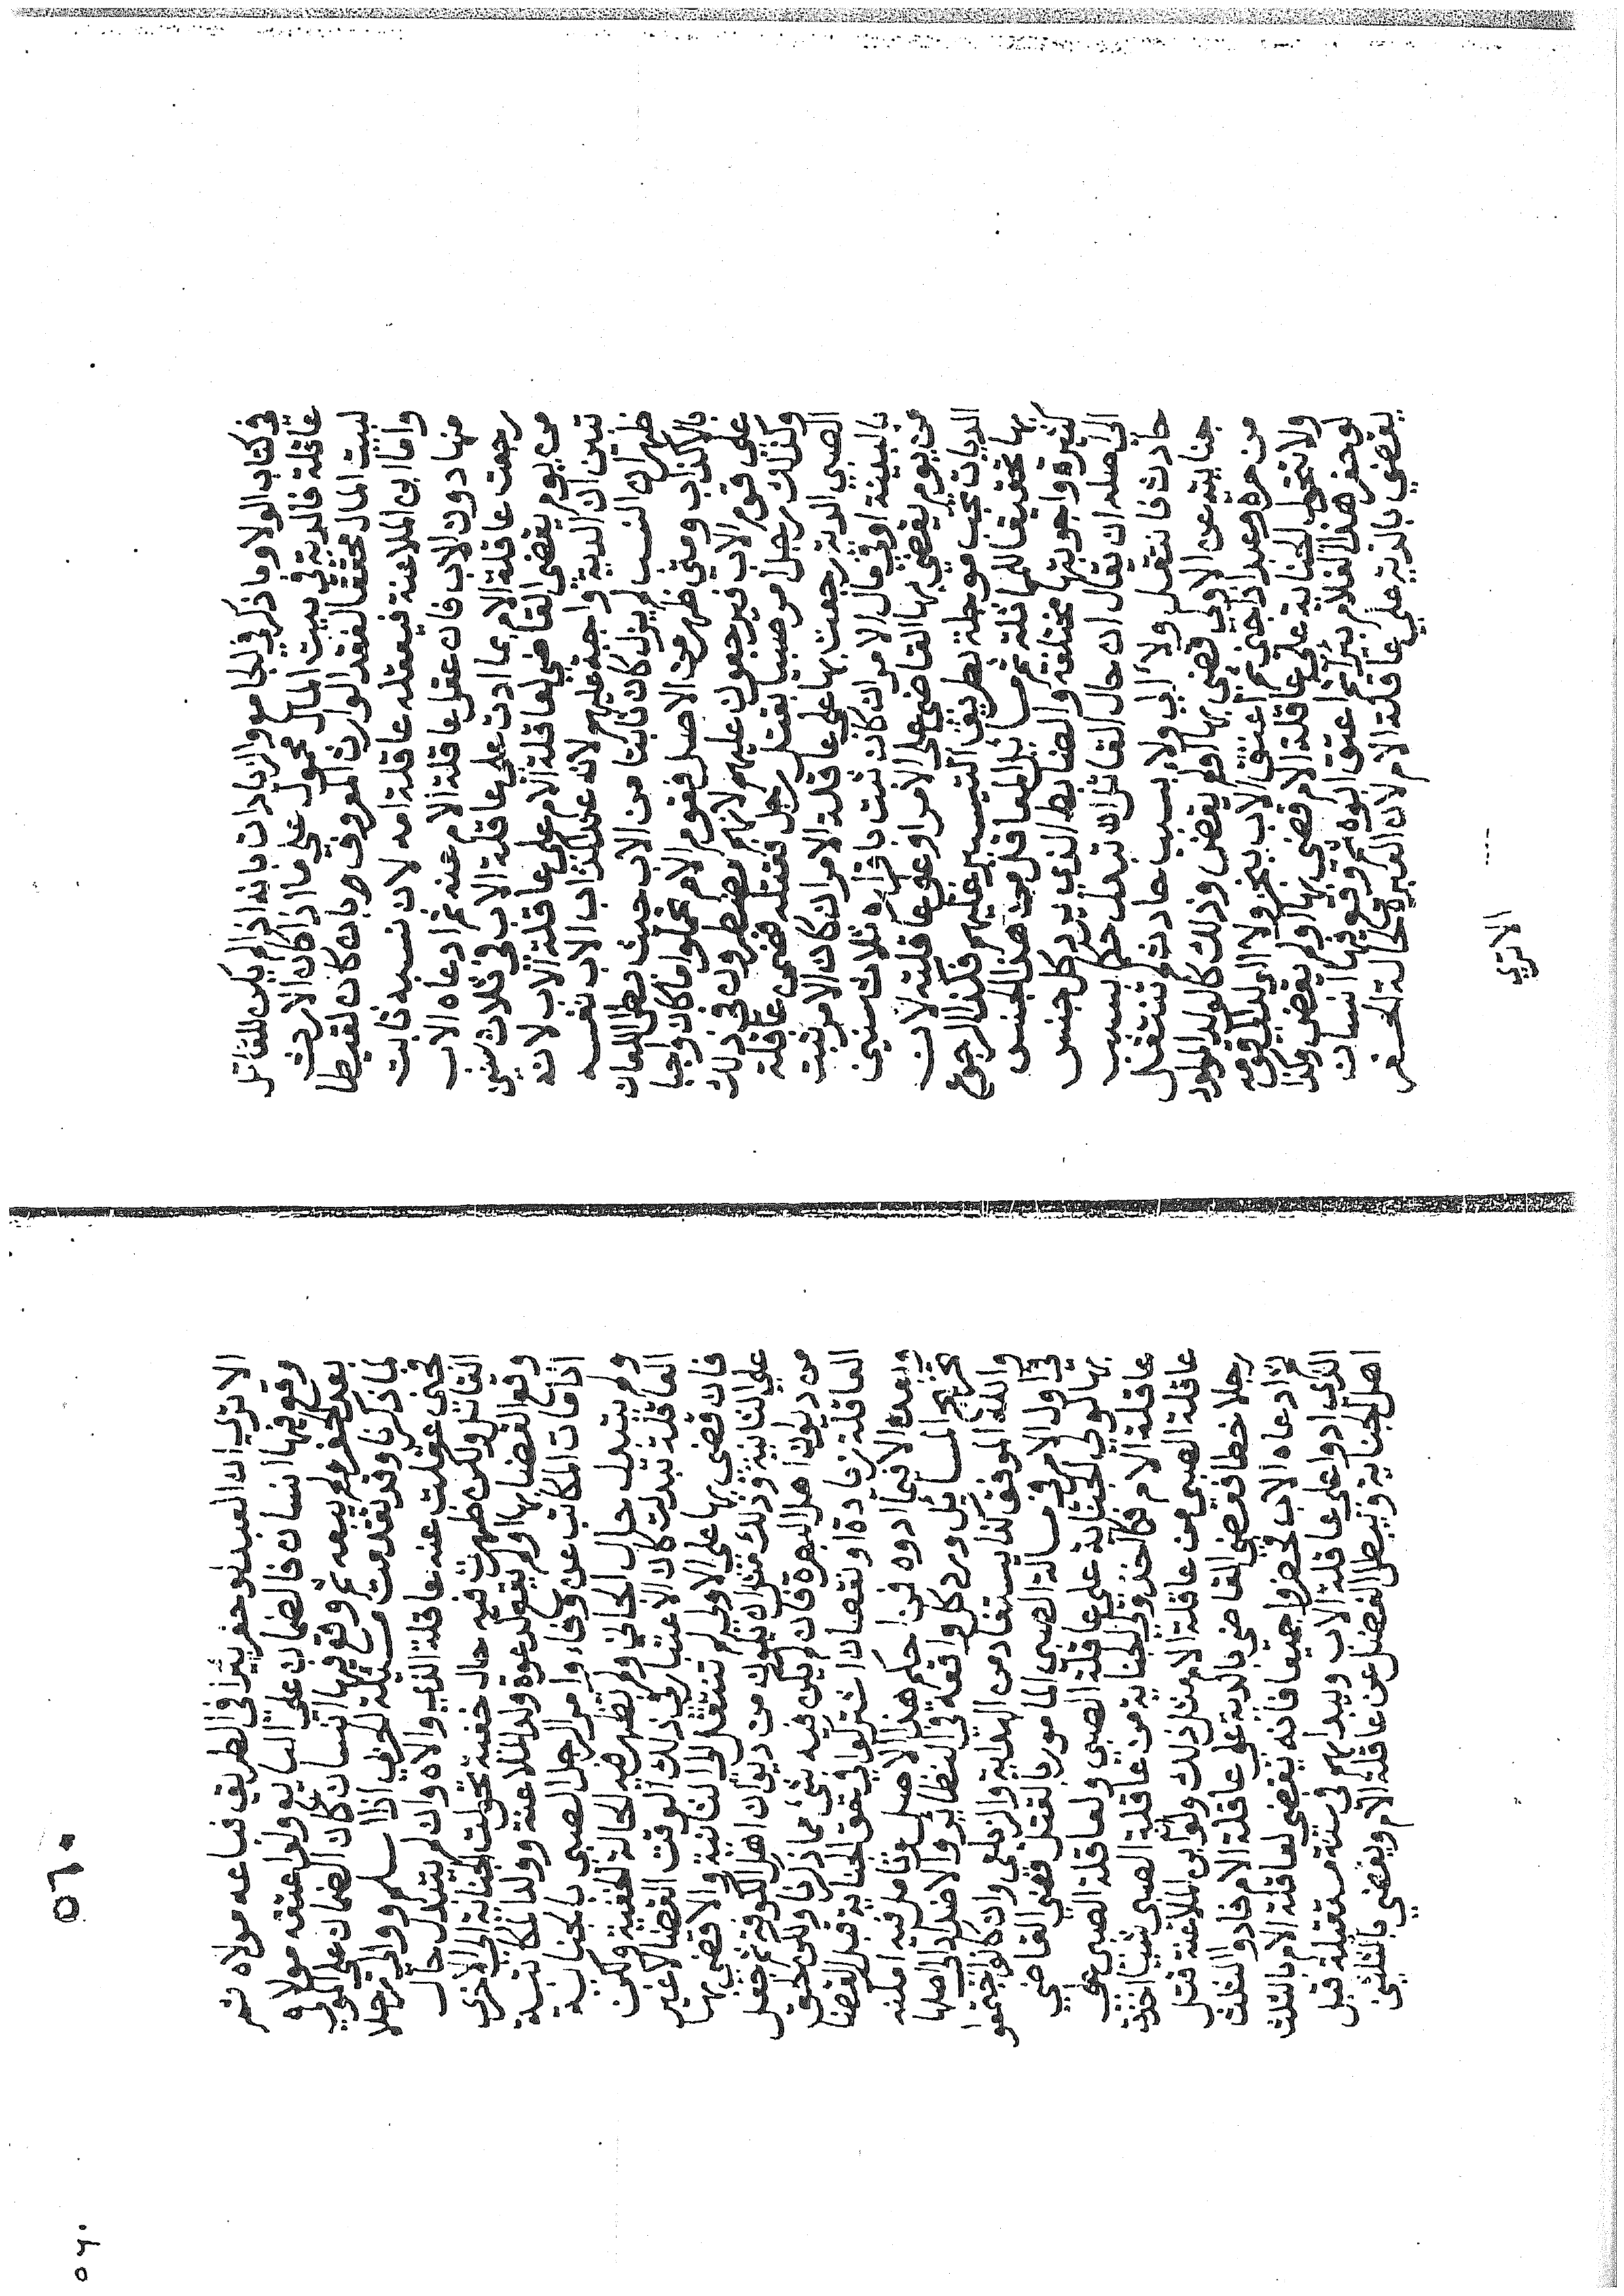 في كتاب الولا وما ذكر في الجامع والزيادات بانه اذا لم يكن للقاتل
عاقلة فالدية في بيت المال محمول علي ما اذا كان الارث
لبيت المال محققا لفقد الوارث المعروف وبان كان لقيطا
واما ابن الملاعنة فيعقله عاقلة امه لان نسبه ثابت
منها دون الاب فان عقل عاقلة الام عنه ثم ادعاه الاب
رجعت عاقلة الام بما ادت علي عاقلة الاب في ثلاث سنين
من يوم يقضي القاضي لعاقلة الام علي عاقلة الاب لانه
تبين ان الدية واجبة عليهم لانه عند اكذاب الاب نفسه
ظهر ان النسب لم يزل كان ثابتا من الاب حيث بطل اللعان
بالاكذاب ومتي ظهر من الاصل فقوم الام تحملوا ما كان واجبا
علي قوم الاب فيرجعون عليهم لانهم مضطرون في ذلك
وكذلك رجل امر صبيا بقتل رجل فقتله فضمن عاقلة
الصبي الدية رجعت بها علي عاقلة الامر ان كان الامر ثبت
بالبينة او في مال الامر ان كان ثبت باقراره ثلاث سنين
من يوم يقضي بها القاضي علي الامر او علي عاقلته لان
الديات تجب موجلة بطريق التيسير عليهم فكذا الرجوع
بها تحقيقا للمماثلة ثم مسائل المعاقل من هذا الجنس
كثيرة واجوبتها مختلفة والضابط الذي يرد كل جنس
الي اصله ان يقال ان حال القاتل اذا تبدل حكما بسبب
حادث فانتقل ولاه الي ولاء بسبب حادث لم تنتقل
جنايته عن الاولي قضي بها او لم يقض وذلك كالولد المولود
من حرة وعبد اذا جني ثم اعتق الاب يجر ولاه الي قومه
ولا تتحول الجناية علي عاقلة الام قضي بها او لم يقض وكذا
لو حفر هذا الغلام بئرا ثم اعتق ابوه ثم وقع فيها انسان
يقضي بالدية علي عاقلة الام لان العبرة لحالة الحفر
الا تري
الا تري ان العبد لو حفر بئرا في الطريق فباعه مولاه ثم
وقع فيها انسان فالضمان علي البايع ولو اعتقه مولاه
بعد الحفر ولم يبعه ثم وقع فيها انسان كان الضمان علي المولي
لما ذكرنا وقد تقدمت مسيلة الحربي اذا اسلم ووالي رجلا
فجني عقلت عنه عاقلة الذي والاه وان لم يتبدل حال
القاتل ولكن ظهرت فيه حال خفية تحولت الجناية الي الاخري
وقع القضا بها او لم يقع كدعوة ولد الملاعنة وولد المكاتبة
اذا مات المكاتب عن وفاء وامر الرجل الصبي بالجناية
ولم يتبدل حال الجاني ولم تظهر فيه الحالة الخفية ولكن
العاقلة تبدلت كان الاعتبار في ذلك لوقت القضا لا غير
فان قضي بها علي الاولي لم تنتقل الي الثانية والا قضي بها
علي الثانية وذلك مثل ان يكون من ديوان اهل الكوفة ثم جعل
من ديوان اهل البصرة فان لم يكن فيه شيء مما ذكرنا ولكن لحق
العاقلة زيادة او نقصان اشتركوا في حق الجناية قبل القضا
وبعده الا فيما ادوه فمن احكم هذا الاصل وتامل فيه امكنه
تخريج المسايل ورد كل واقعة في النظاير والاضداد الي اصلها
والله الموفق كذا يستفاد من الهداية والزيلعي وان كانوا اجتمعوا
في اول الامر في مسالة الصبي المامور بالقتل قضي القاضي
بها لولي الجناية علي عاقلة الصبي ولعاقلة الصبي علي
عاقلة الامر فكلما اخذ ولي الجناية من عاقلة الصبي شيئا اخذت
عاقلة الصبي من عاقلة الامر مثل ذلك ولو ان ابن الملاعنة قتل
رجلا خطا فقضي القاضي بالدية علي عاقلة الام فادوا الثلث
ثم ادعاه الاب فحضروا جميعا فانه يقضي لعاقلة الام بالثلث
الذي ادوا علي عاقلة الاب ويبدا بهم في سنة مستقبلة قبل
اهل الجناية ويبطل الفضل عن عاقلة الام ويقضي بالثلثين
٥٦٠
٥٦٠